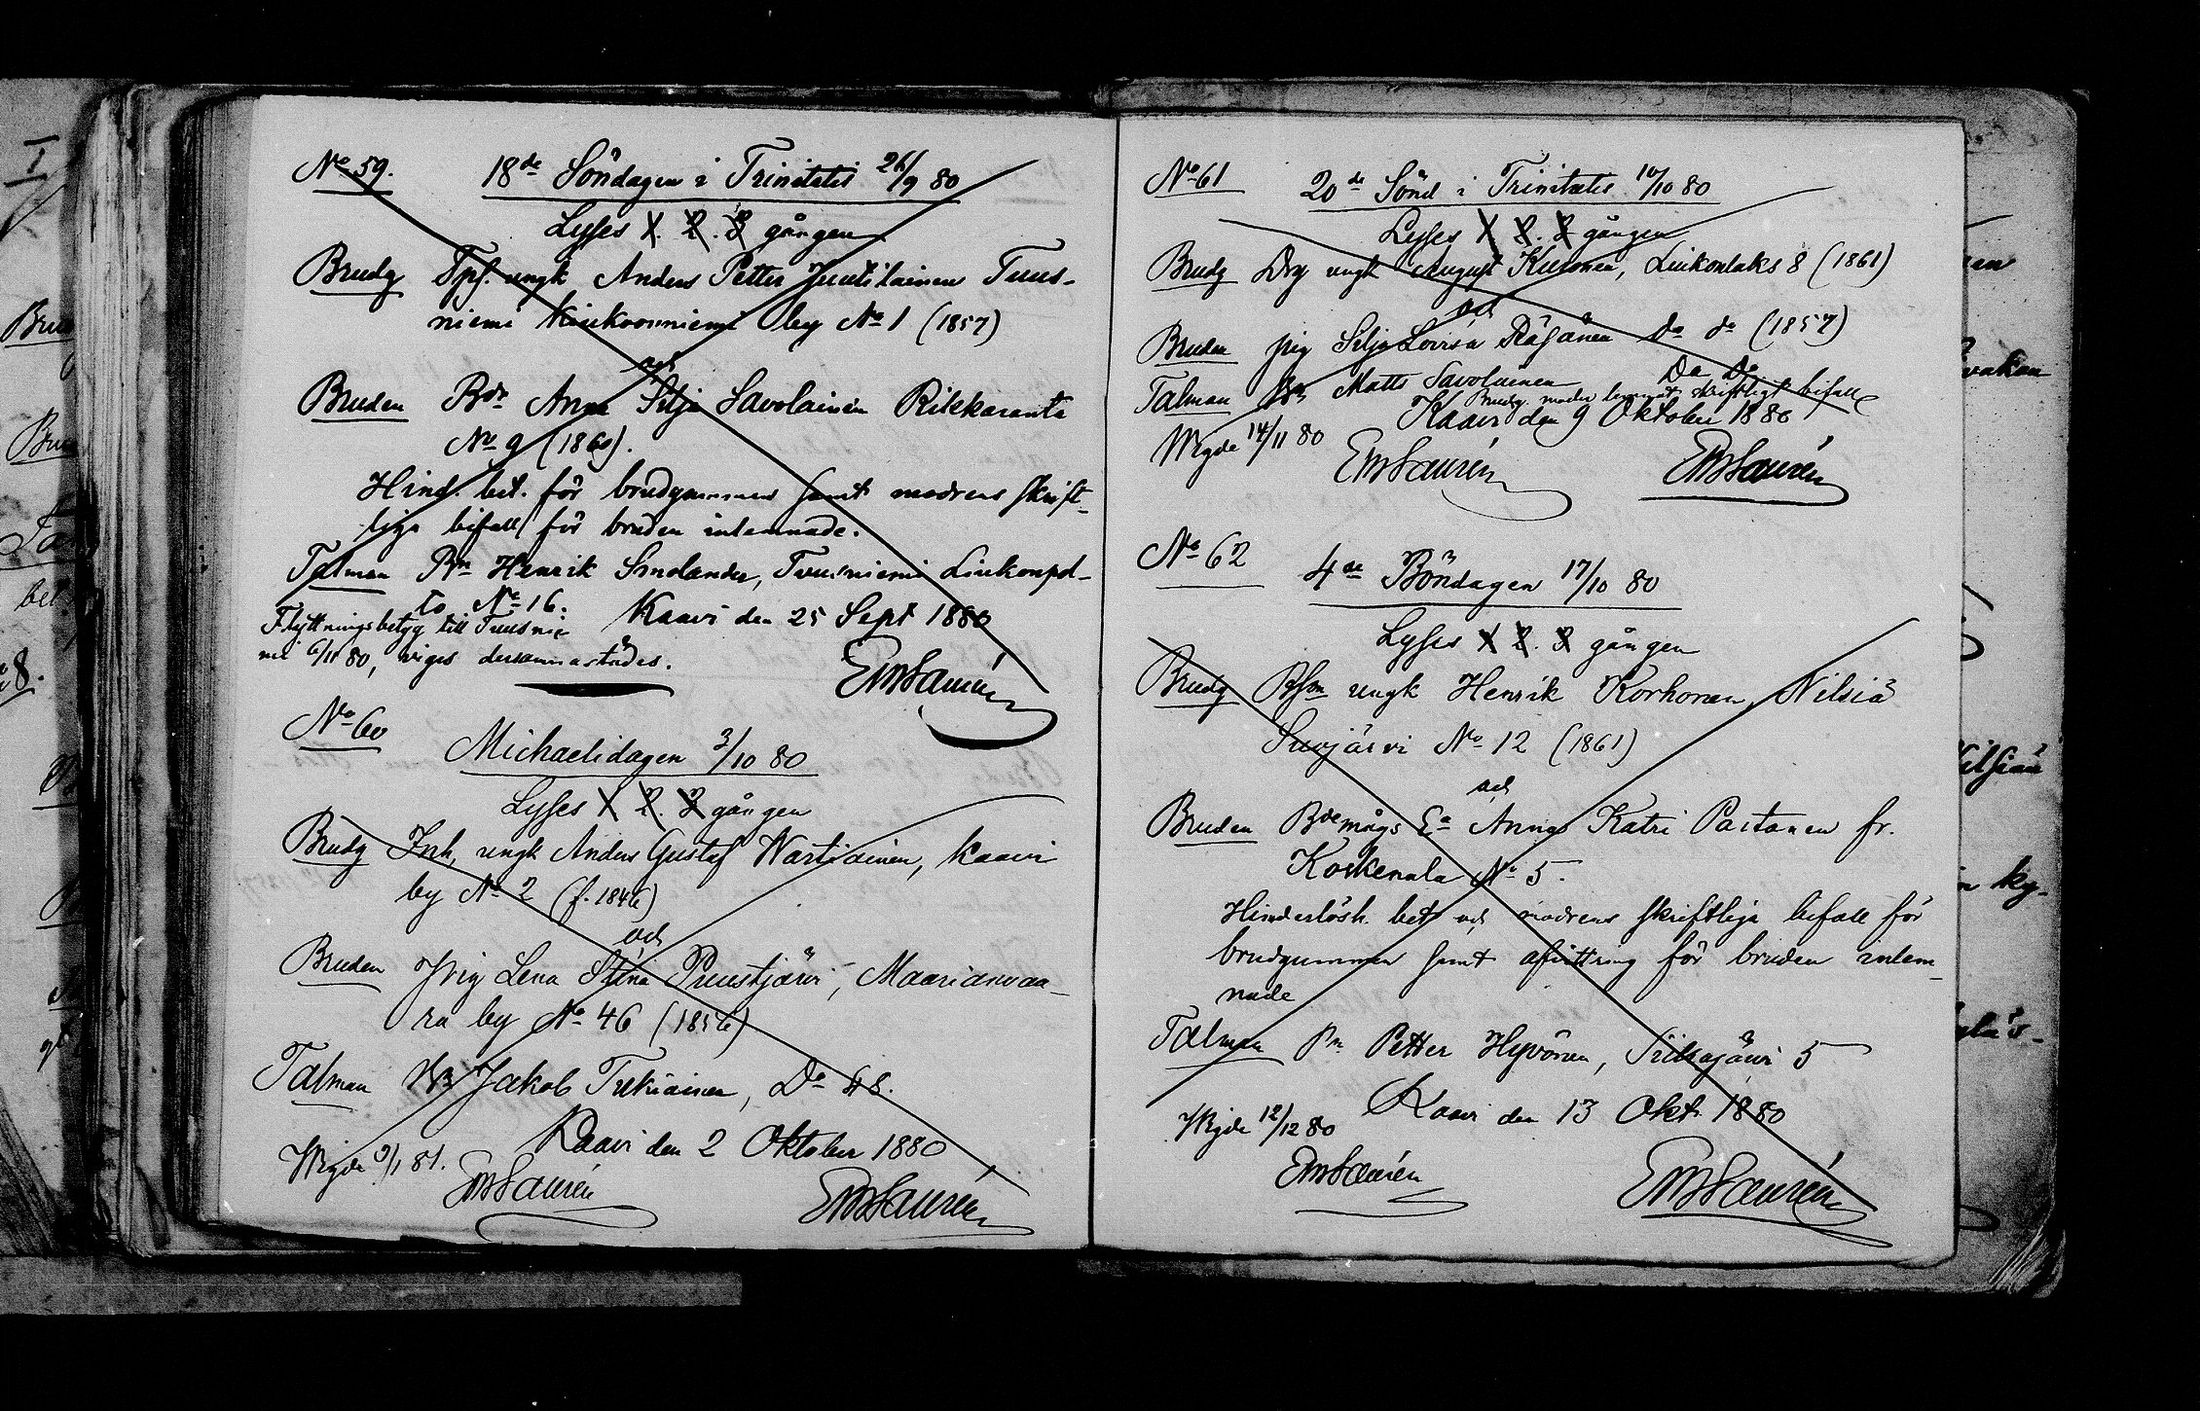 No 59.
18de Söndagen i Trinitatis 26/9 80
Lyses 1. 2. 3 gången
Brudg Tpf. ungk Anders Petter Juutilainen Tuus-
niemi by No 1 (1857)
och
Bruden Bdr Anna Silja Savolainen Rikkaranta
No 9 (1860).
Hind. bet. för brudgummen samt modrens skrift-
liga bifall för bruden inlemnade.
Talman Bn Henrik Smolander, Tuusniemi Liukonpel-
to No 16.
Kaavi den 25 Sept 1880
Flyttningsbetyg till Tuusnie
mi 6/11 80, viges dersammastädes.
EWLaurén
No 60
Michaelidagen 3/10 80
Lyses 1 2. 3 gången
Brudg Inh, ungk Anders Gustaf Wartiainen, Kaavi
by No 2 (f. 1846)
och
Bruden Pig Lena Stina Puustjärvi, Maarianvaa-
ra by No 46 (1856)
Talman Jakob Tukiainen, Do 48.
Kaavi den 2 Oktober 1880
Wigde 9/1 81.
EWLaurén
EWLaurén
No 61
20de Sönd i Trinitatis 10/10 80
Lyses 1 2. 3 gången
Brudg Drg ungk August Kuronen, Liukonlaks 8 (1861)
och
Bruden pig Silja Lovisa Räsänen do do (1857)
Talman Bn Matts Savolainen Do Do
Brudg. moder lemnat skriftligt bifall
Kaavi den 9 Oktober 1880
Wigde 14/11 80
EWLaurén
EWLaurén
No 62
4de Böndagen 17/10 80
Lyses 1 2. 3 gången
Brudg Bson ungk Henrik Korhonen, Nilsiä
Suojärvi No 12 (1861)
och
Bruden Bdemågs Ea Anna Katri Partanen fr.
Koskenala No 5.
Hinderlösh. bet och modrens skriftliga bifall för
brudgummen samt afvittring för bruden inlem-
nade
Talman Bn Petter Hyvönen, Siikajärvi 5
Kaavi den 13 Okt. 1880
Wigde 12/12 80
EWLaurén
EWLaurén